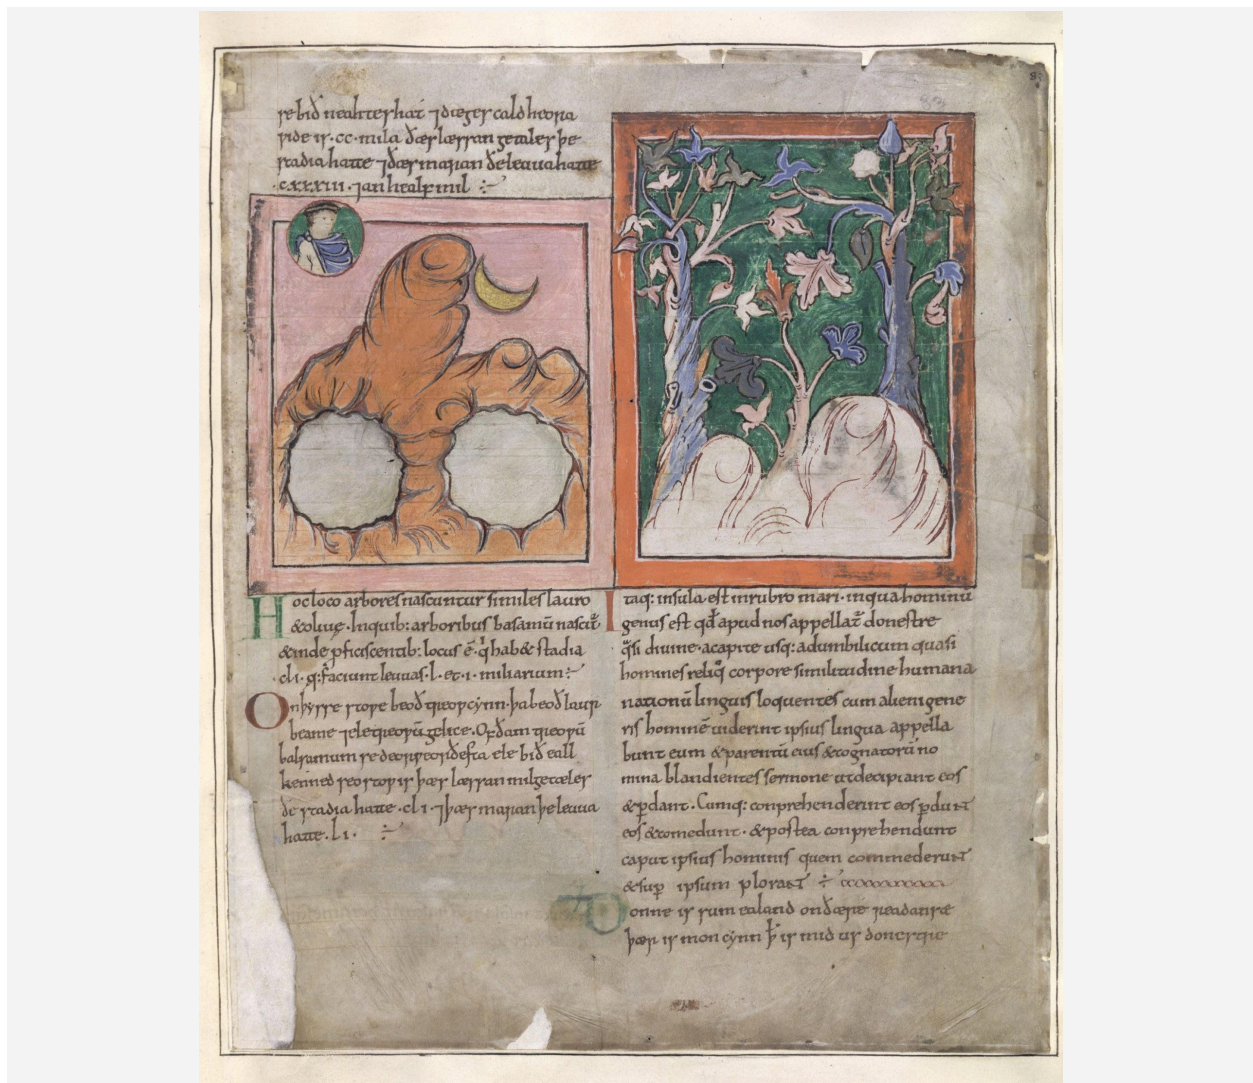 se bið neahternest ⁊ dæges cald heora
side is ·cc· mila ðæs læssan getæles þe
stadia hatte ⁊ ðæs maran ðe leuua hatte
·cxxxiii· ⁊ an healf mil
Hoc loco arbores nascuntur similes lauro
& oliuę · Inquib: arboribus balsamū nascit̄
& inde pficiscentib: locus ē· q̇ hab& stadia
·cli· q: faciunt leuuas ·l· et ·i· miliarium :
On þysse stope beoð treopcynn · þa beoð laur
beame ⁊ eletreopū gelice · Of ðam treopū
balsamum se deorpeorðesta ele bið eall
kenned seo stop is þæs læssan milgetæles
ðe stadia hatte ·cli· ⁊ þæs maran þe leuua
hatte · li ·
Itaq: insula est in rubro mari · in qua hominū
genus est qđ apud nos appellat̄ donestre
q̄si diuine · a capite usq: ad umbilicum quasi
homines reliq̊ corpore similitudine humana
nationū linguis loquentes cum alieni gene
ris hominē uiderint ipsius lingua appella
bunt eum & parentū eius & cognatorū no
mina blandientes sermone ut decipiant eos
& pdant · Cumq: conprehenderint eos pdunt
eos & comedunt · & postea conprehendunt
caput ipsius hominis quem commederunt
& sup ipsum plorant
Ðonne is sum ealand on ðære readan sæ
þær is mon cynn ꝥ is mid us donestre